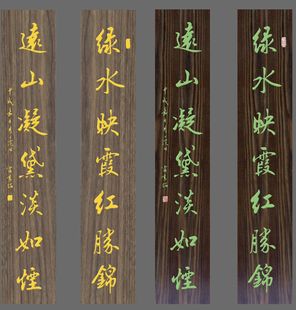 绿水映霞红勝錦
遠山凝黛淡如煙
绿水映霞红勝錦
遠山凝黛淡如煙